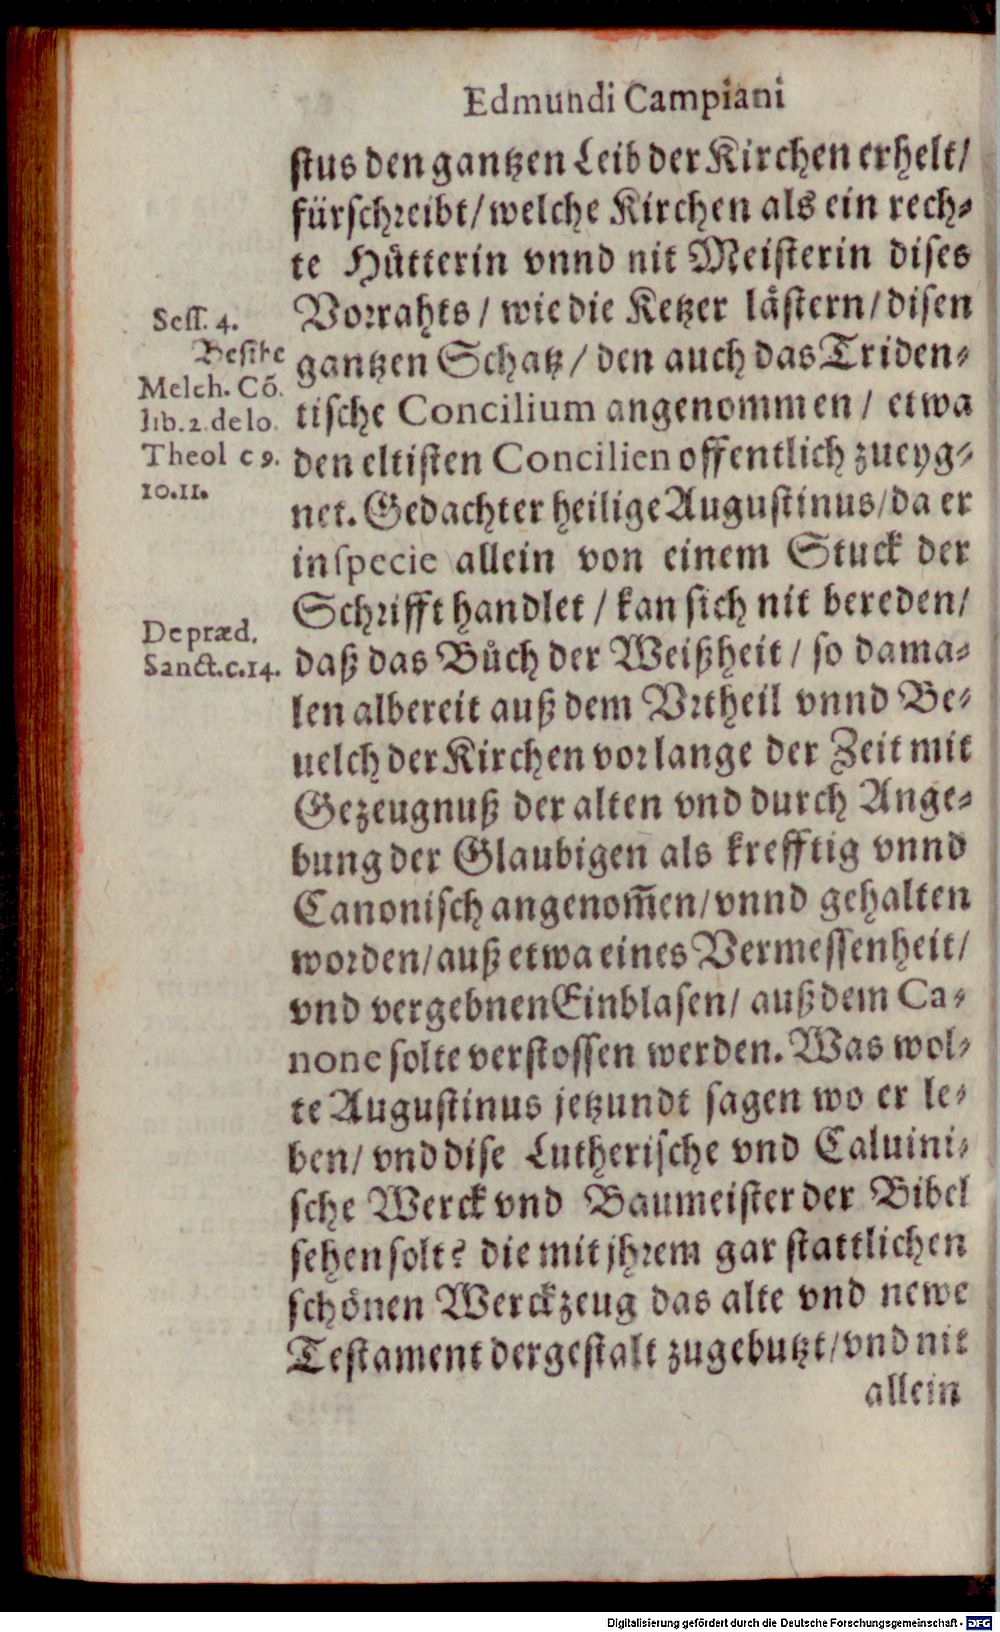 Edmundi Campiani
stus den gantzen Leib der Kirchen erhelt/
fürschreibt/ welche Kirchen als ein rech-
te Hütterin vnnd nit Meisterin dises
Vorrahts / wie die Ketzer lästern/ disen
gantzen Schatz/ den auch das Triden-
tische Concilium angenommen / etwa
den eltisten Concilien offentlich zueyg-
net. Gedachter heilige Augustinus/ da er
in specie allein von einem Stuck der
Schrifft handlet / kan sich nit bereden/
daß das Bůch der Weißheit / so dama-
len albereit auß dem Vrtheil vnnd Be-
uelch der Kirchen vor lange der Zeit mit
Gezeugnuß der alten vnd durch Ange-
bung der Glaubigen als krefftig vnnd
Canonisch angenom̄en/ vnnd gehalten
worden/ auß etwa eines Vermessenheit/
vnd vergebnen Einblasen/ auß dem Ca-
none solte verstossen werden. Was wol-
te Augustinus jetzundt sagen wo er le-
ben/ vnd dise Lutherische vnd Caluini-
sche Werck vnd Baumeister der Bibel
sehen solt? die mit jhrem gar stattlichen
schönen Werckzeug das alte vnd newe
Testament dergestalt zugebutzt/ vnd nit
allein
Sess. 4.
Besihe
Melch. Cō.
lib. 2. de lo.
Theol c 9.
10. 11.
De præd.
Sanct. c. 14.
Digitalisierung gefördert durch die Deutsche Forschungsgemeinschaft - DFG